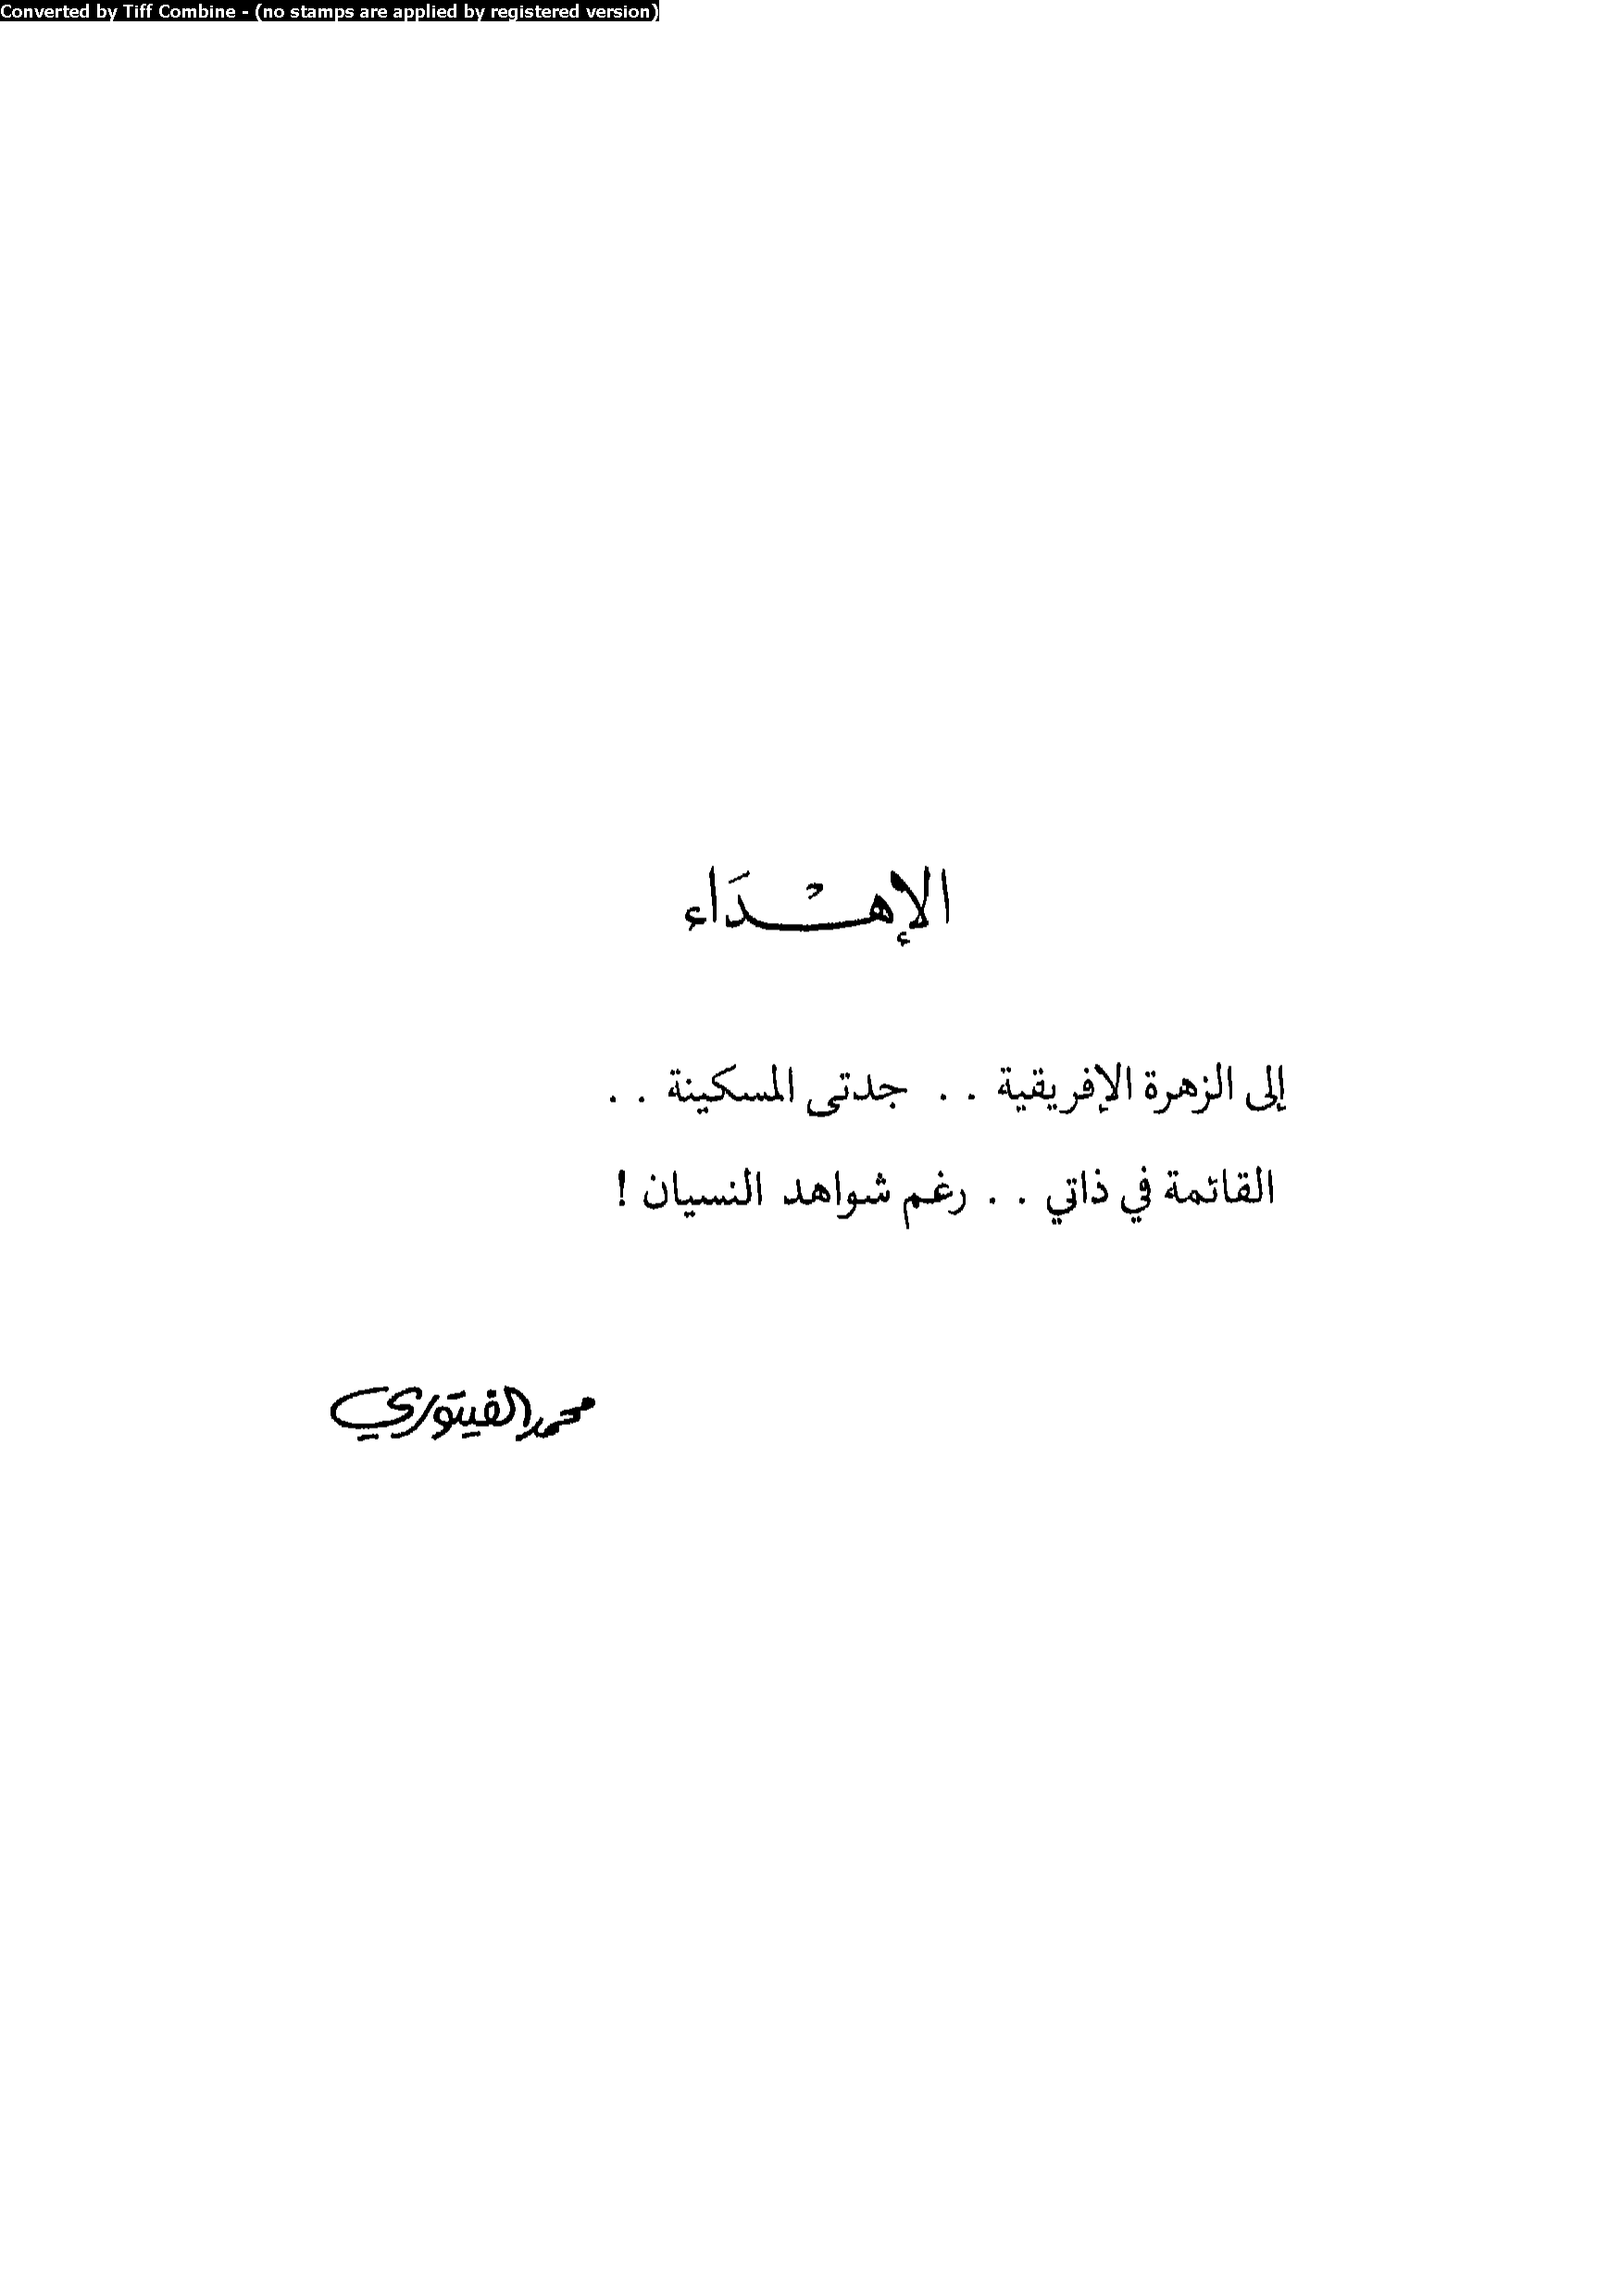 Converted by Tiff Combine - (no stamps are applied by registered version)
الإهْــدَاء
إلى الزهرة الإفريقية . . جدتى المسكينة . .
القائمة في ذاتي . . رغم شواهد النسيان !
محمد الفيتوري